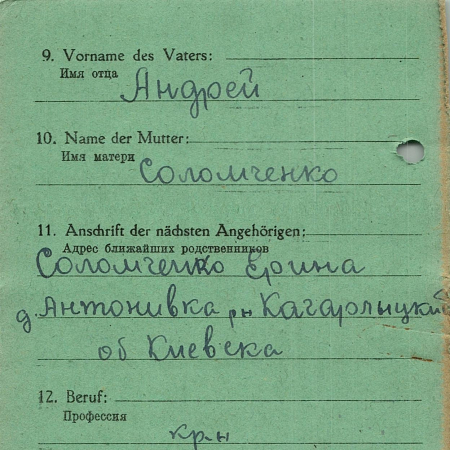 9. Vorname des Vaters:
Имя отца
Андрей
10. Name der Mutter:
Имя матери
Соломченко
11. Anschrift der nächsten Angehörigen:
Адрес ближайших родственников
Соломченко Ерина
д Антонивка рн Кагарлыцкий
об Киевска
12. Beruf:
Профессия
кр-н